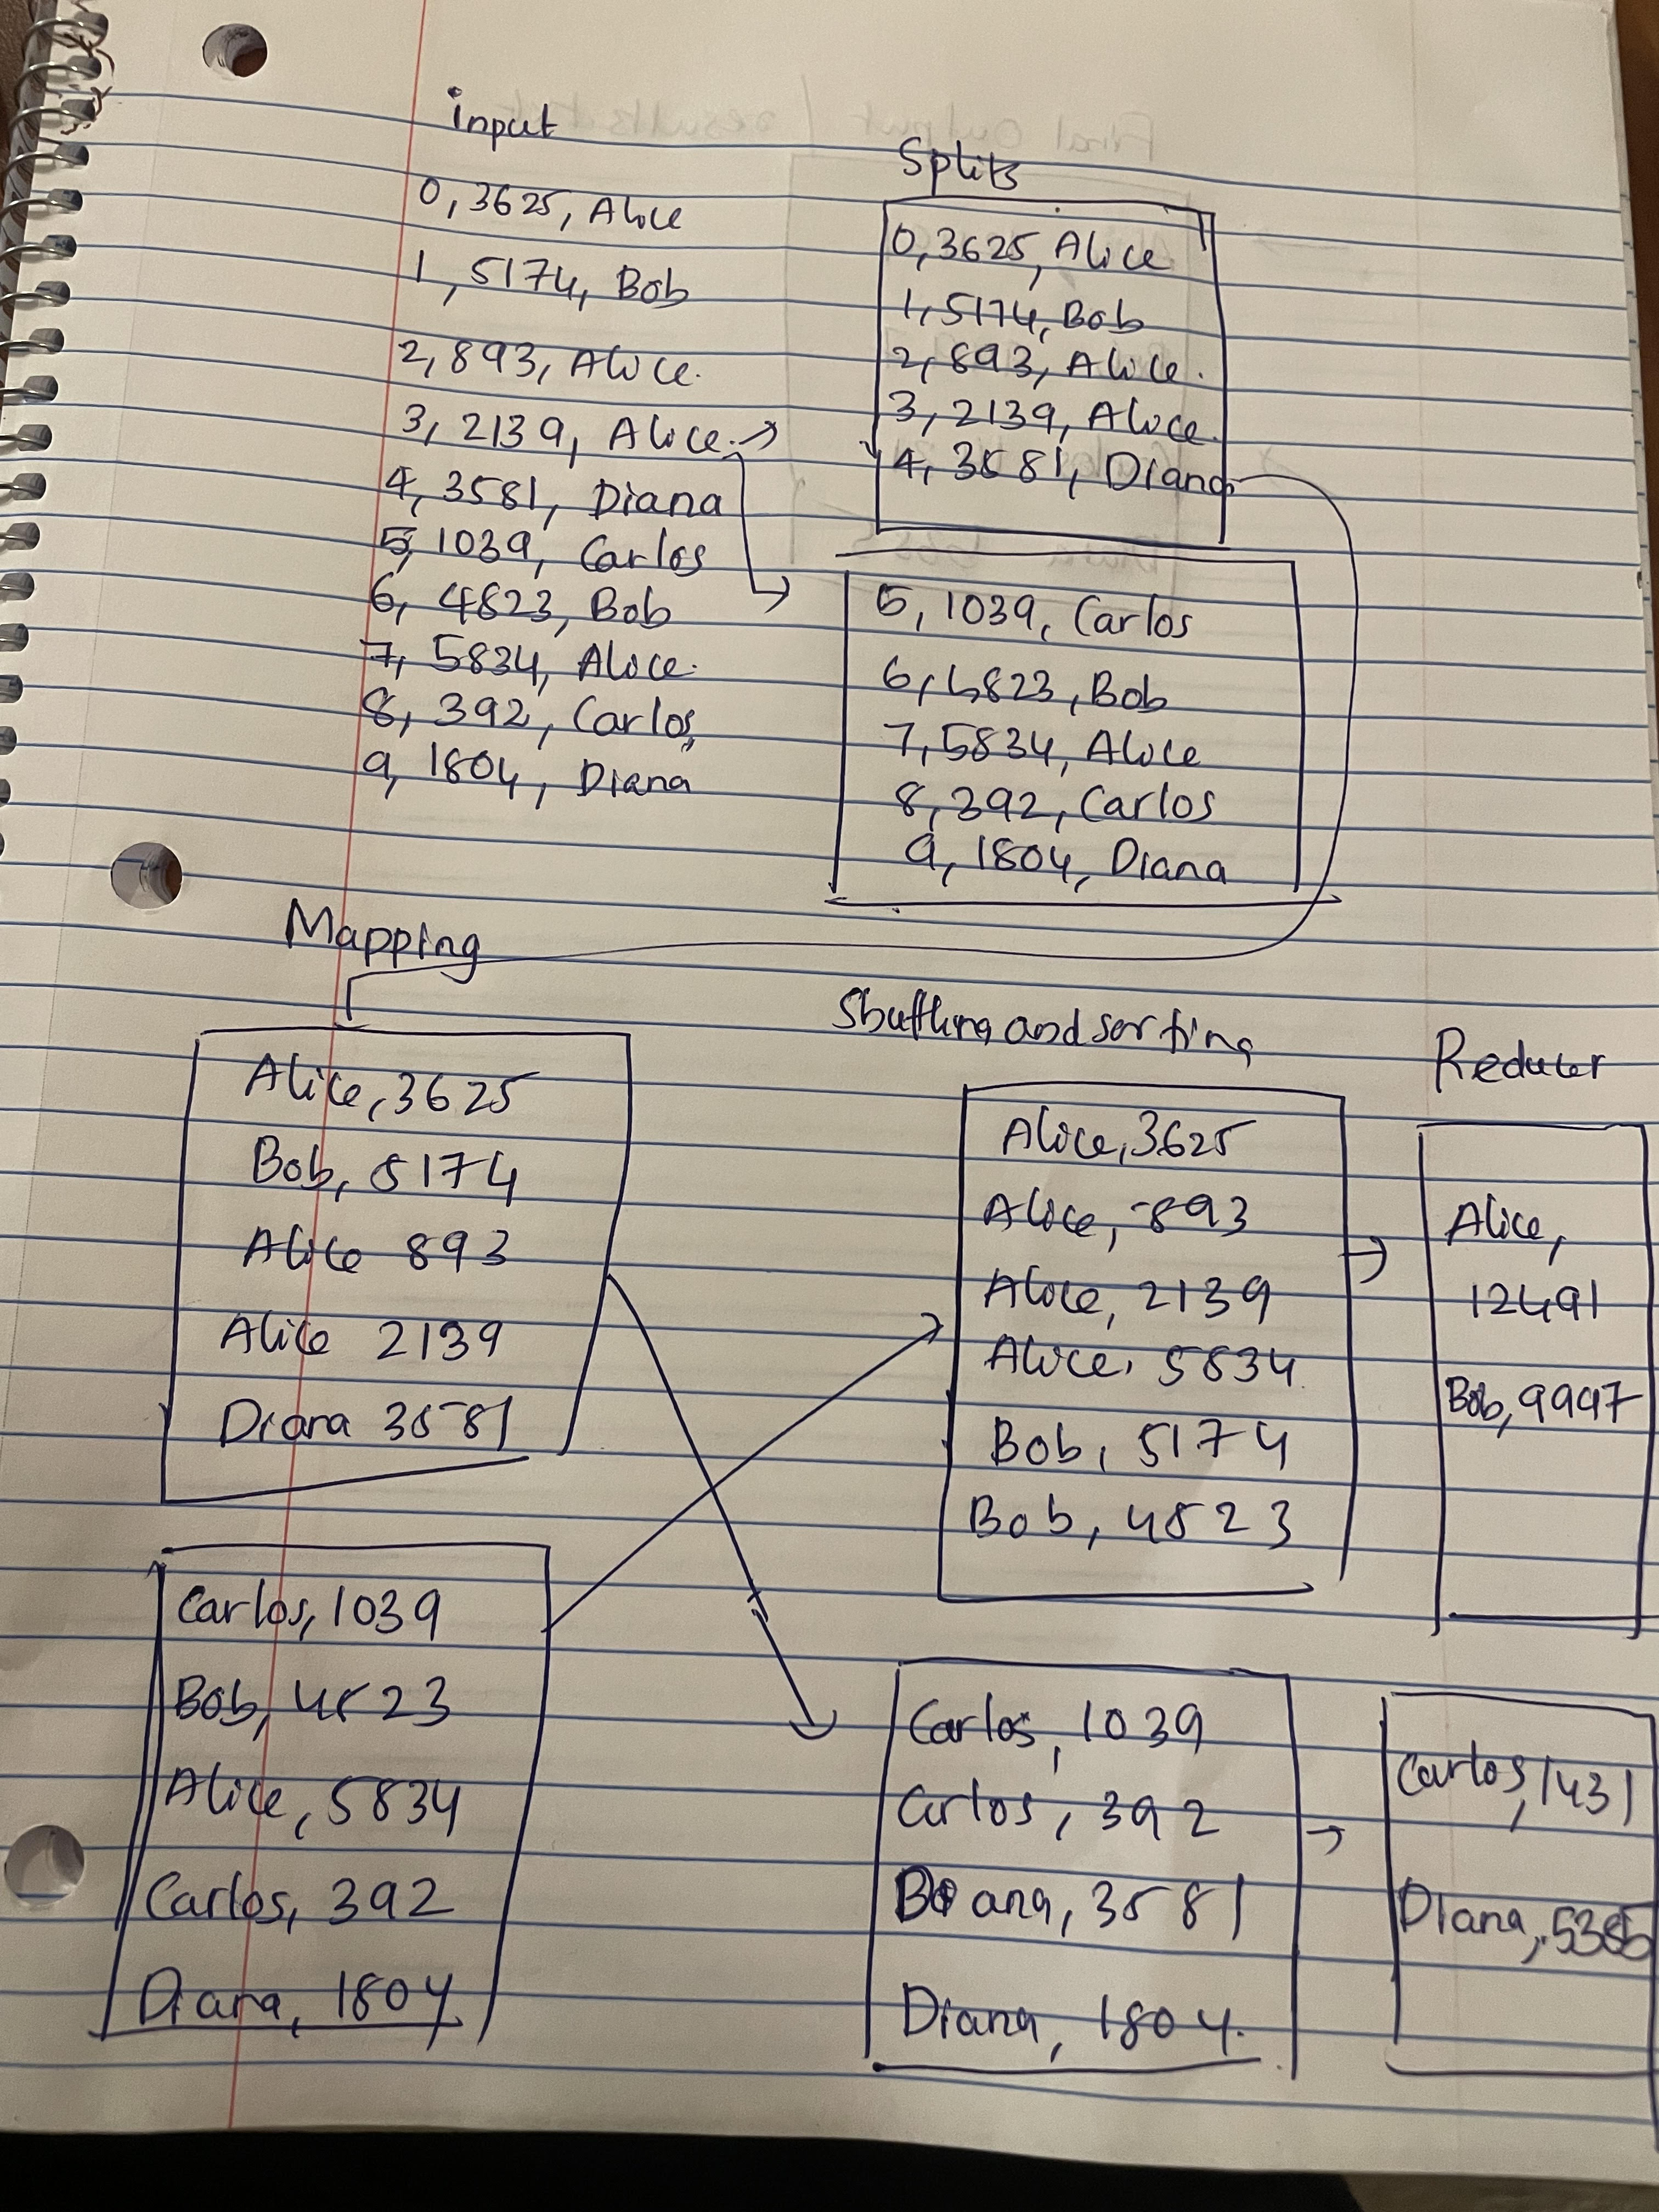 input
0, 3625, Alice
1, 5174, Bob
2, 893, Alice.
3, 2139, Alice.
4, 3581, Diana
5, 1039, Carlos
6, 4823, Bob
7, 5834, Alice.
8, 392, Carlos
9, 1804, Diana
Splits
0, 3625, Alice
1, 5174, Bob
2, 893, Alice.
3, 2139, Alice.
4, 3581, Diana
5, 1039, Carlos
6, 4823, Bob
7, 5834, Alice
8, 392, Carlos
9, 1804, Diana
Mapping
Alice, 3625
Bob, 5174
Alice 893
Alice 2139
Diana 3581
Carlos, 1039
Bob, 4823
Alice, 5834
Carlos, 392
Diana, 1804
Shuffling and sorting
Alice, 3625
Alice, 893
Alice, 2139
Alice, 5834
Bob, 5174
Bob, 4823
Carlos, 1039
Carlos, 392
3581
Diana, 1804.
Reducer
Alice,
12491
Bob, 9997
Carlos, 1431
Diana, 5385